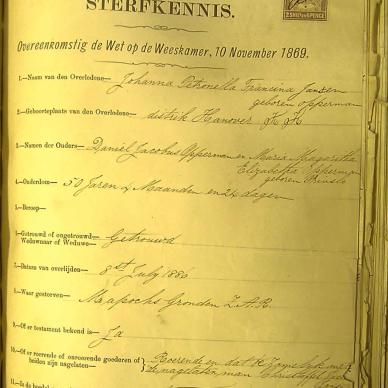 STERFKENNIS.
2 SHILL. & 6 PENCE
Overeenkomstig de Wet op de Weeskamer, 10 November 1869.
1.—Naam van den Overledene— Johanna Petronella Francina Jansen
geboren Opperman
2.—Geboorteplaats van den Overledene— distrik Hanover K K
3.—Namen der Ouders— Daniel Jacobus Opperman en Maria Margaretha
Elizabetha Opperman
geboren
4.—Ouderdom— 50 Jaren 4 Maanden en 24 dagen
5.—Beroep—
6.—Getrouwd of ongetrouwd
Weduwnaar of Weduwe— Getrouwd
7.—Datum van overlijden— 8st July 1886
8.—Waar gestorven— Mapochs Gronden Z.A.R.
9.—Of er testament bekend is— Ja
10.—Of er roerende of onroerende goederen of
beiden zijn nagelaten— Roerende en dat
nagelaten man
11.—Is de